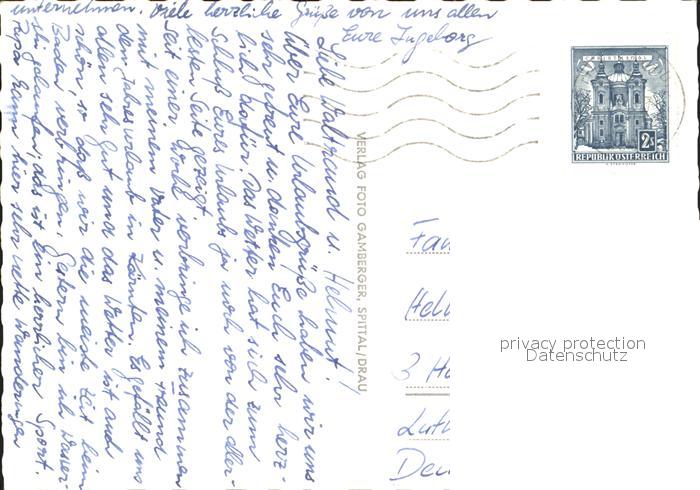 Liebe Waltraud u. Helmut!
Über Eure Urlaubsgrüße haben wir uns
sehr gefreut u. danken Euch sehr herz-
lich dafür. Das Wetter hat sich zum
Schluß Eures Urlaubs ja noch von der aller-
besten Seite gezeigt.
Seit einer Woche verbringe ich zusammen
mit meinem Vater u. meinem Freund
den Jahresurlaub in Kärnten. Es gefällt uns
allen sehr gut und das Wetter ist auch
schön, so daß wir die meiste Zeit beim
Baden verbringen. Gestern bin ich Wasser-
ski gelaufen; das ist ein herrlicher Sport.
kann hier sehr nette Wanderungen
unternehmen. Viele herzliche Grüße von uns allen
Eure Ingeborg
VERLAG FOTO GAMBERGER, SPITTAL/DRAU
CHRISTKINDL
2S
REPUBLIK ÖSTERREICH
Fam
Helm
3 Ha
Luth
Deu
privacy protection
Datenschutz